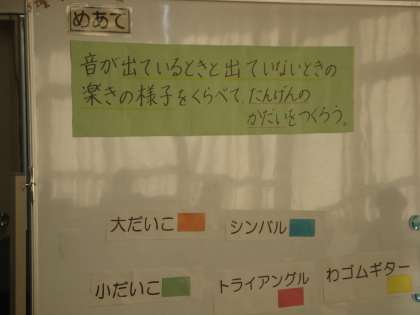 めあて
音が出ているときと出ていないときの
楽きの様子をくらべて、たんげんの
かだいをつくろう。
大だいこ
シンバル
小だいこ
トライアングル
わゴムギター